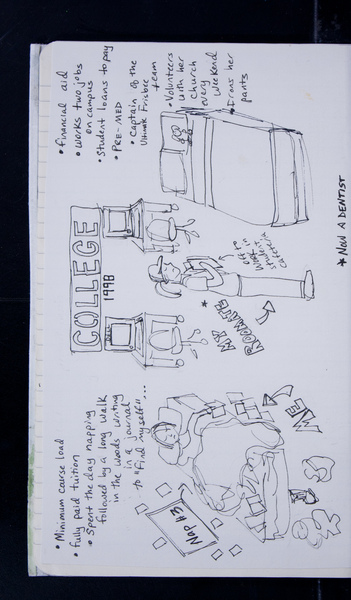 COLLEGE
1998
• Minimum carse load
• fully paid tuition
• Spent the day napping
followed by a long walk
in the woods writing
in a journal
to "find myself"...
Nap #3
ME
• financial aid
• Works two jobs
on campus
• Student loans to pay
• PRE-MED
• Captain of the
Ultimate Frisbee
team
• Volunteers
with her
church
every
weekend
• Irons her
pants
MY
ROOMATE
student
* NOW A DENTIST